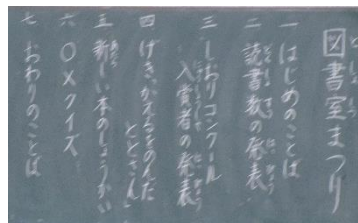 図書室まつり
一 はじめのことば
二 読書数の発表
三 しおりコンクール
入賞者の発表
四 げき「かえるをのんだ
ととさん」
五 新しい本のしょうかい
六 〇×クイズ
七 おわりのことば